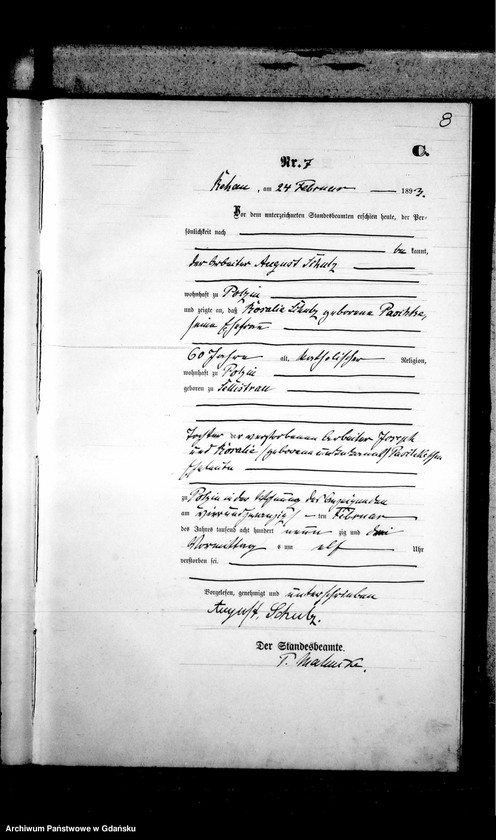 8
C.
Nr. 7
am 24 Februar 1893.
Vor dem unterzeichneten Standesbeamten erschien heute, der Per-
sönlichkeit nach
be kannt,
der Arbeiter August Schulz
wohnhaft zu Polzin
und zeigte an, daß Rosalie Schulz geborene
seine Ehefrau
60 Jahre alt, katholischer Religion,
wohnhaft zu Polzin
geboren zu
Tochter der verstorbenen Arbeiter Joseph
und Rosalie (geborene unbekannt)
Eheleute
zu Polzin in der Wohnung des Anzeigenden
am vierundzwanzigsten Februar
des Jahres tausend acht hundert neun zig und drei
Vormittag s um elf Uhr
verstorben sei.
Vorgelesen, genehmigt und unterschrieben
August Schulz.
Der Standesbeamte.
Archiwum Państwowe w Gdańsku